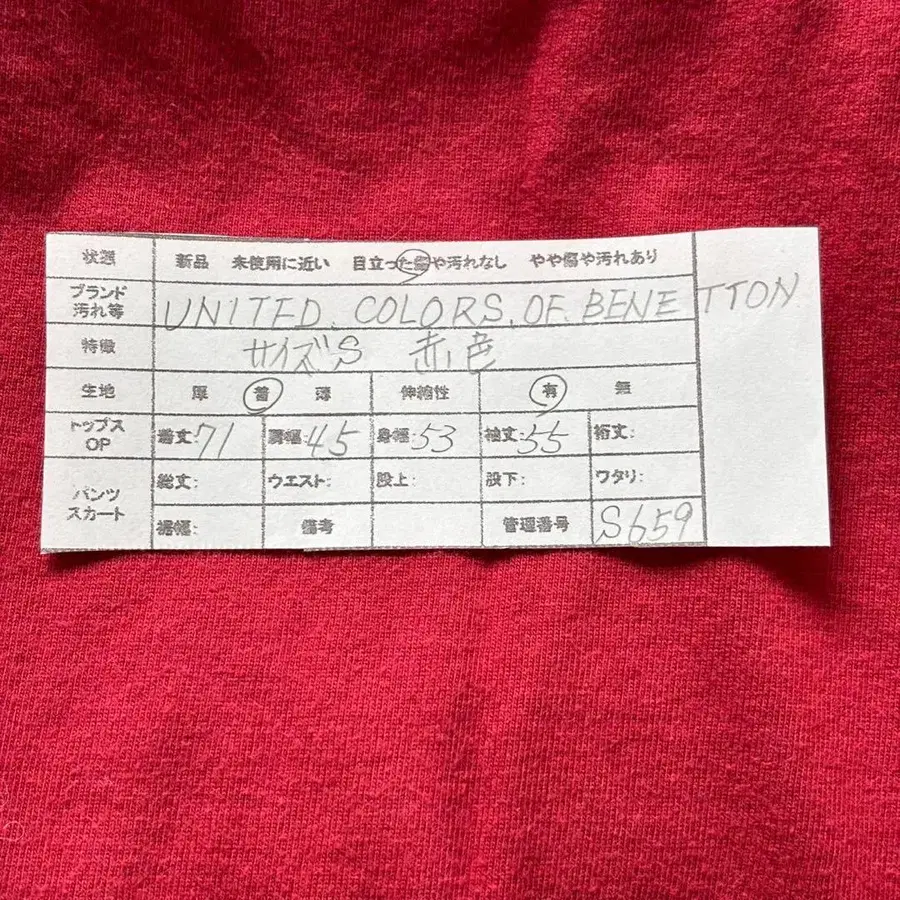 状態 新品 未使用に近い 目立った傷や汚れなし やや傷や汚れあり
ブランド 汚れ等 UNITED. COLORS. OF. BENETTON
特徴 サイズS 赤色
生地 厚 普 薄 伸縮性 有 無
トップス OP 着丈:71 肩幅:45 身幅:53 袖丈:55 裄丈:
パンツ スカート 総丈: ウエスト: 股上: 股下: ワタリ:
裾幅: 備考 管理番号 S659